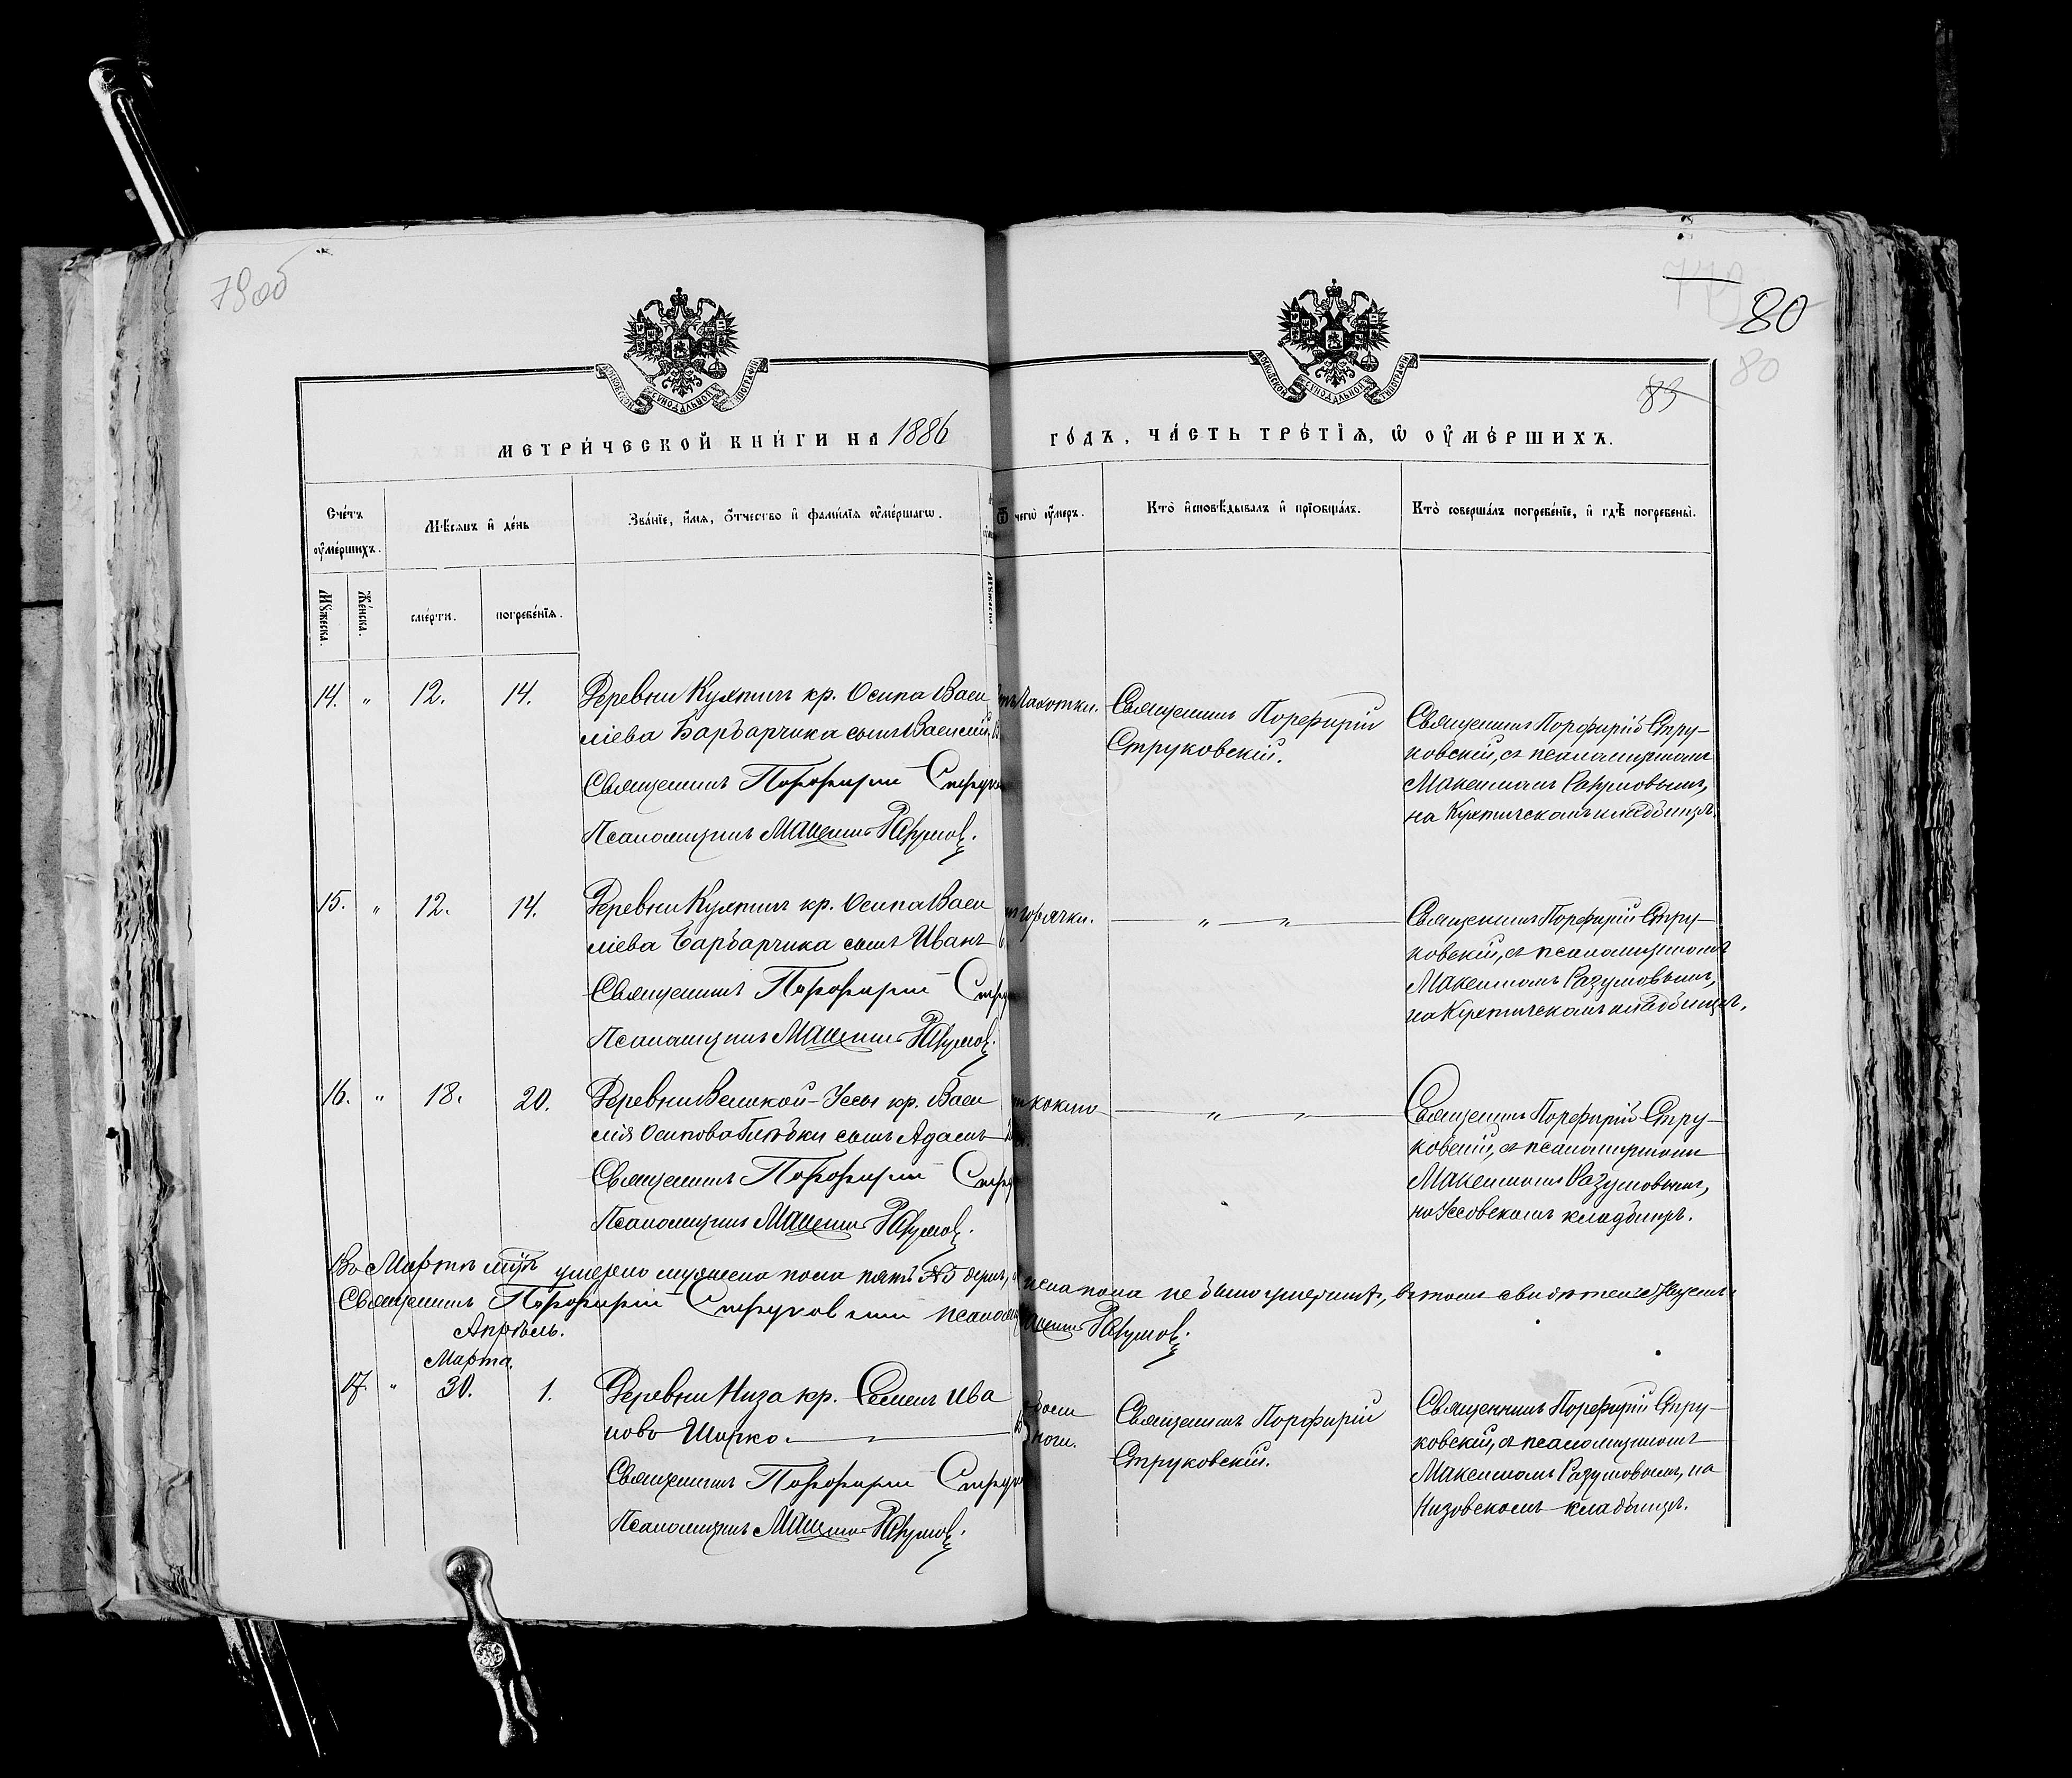 79об
80
80
83
МОСКОВСКОЙ СѴНОДАЛЬНОЙ ТИПОГРАФІИ
МОСКОВСКОЙ СѴНОДАЛЬНОЙ ТИПОГРАФІИ
МЕТРИ́ЧЕСКОЙ КНИ́ГИ НА 1886
ГО́ДЪ, ЧА́СТЬ ТРЕ́ТІѦ, Ѡ ОУ҆МЕ́РШИХЪ.
Сче́тъ
оу҆ме́ршихъ.
Мѣ́сѧцъ и҆ де́нь
Зва́нїе, и҆́мѧ, ѻ҆́тчество и҆ фами́лїѧ оу҆ме́ршагѡ.
Ѿ чегѡ̀ оу҆́меръ.
Кто̀ и҆сповѣ́дывалъ и҆ прїѡбща́лъ.
Кто̀ соверша́лъ погребе́нїе, и҆ гдѣ̀ погребены̀.
Мꙋ́жеска.
Же́нска.
сме́рти.
погребе́нїѧ.
Мꙋ́жеска.
14. „ 12. 14.
Деревни Кухтичъ кр. Осипа Васи
ліева Барбарчика сынъ Василій
Священникъ Порфирій
Псаломщикъ Максимъ Разумовъ.
чахотки.
Священникъ Порфирій
Струковскій.
Священникъ Порфирій Стру-
ковскій, съ псаломщикомъ
Максимомъ Разумовымъ,
на Кухтическомъ кладбищѣ.
15. „ 12. 14.
Деревни Кухтичъ кр. Осипа Васи
ліева Барбарчика сынъ Иванъ
Священникъ Порфирій
Псаломщикъ Максимъ Разумовъ.
горячки.
„ „
Священникъ Порфирій Стру-
ковскій, съ псаломщикомъ
Максимомъ Разумовымъ,
на Кухтическомъ кладбищѣ.
16. „ 18. 20.
Деревни Великой-Уссы кр. Васи
лія Осипова сынъ Адамъ
Священникъ Порфирій
Псаломщикъ Максимъ Разумовъ.
„ „
Священникъ Порфирій Стру-
ковскій, съ псаломщикомъ
Максимомъ Разумовымъ,
на Уссовскомъ кладбищѣ.
Въ Мартѣ м-цѣ умерло мужеска пола пять №5 пола не было умершихъ, въ томъ
Священникъ Порфирій Струковскій Разумовъ.
Апрѣль.
Марта.
17. „ 30. 1.
Деревни Низа кр. Семенъ Ива
новъ Шарко. „
Священникъ Порфирій
Псаломщикъ Максимъ Разумовъ.
Священникъ Порфирій
Струковскій.
Священникъ Порфирій Стру-
ковскій, съ псаломщикомъ
Максимомъ Разумовымъ, на
Низовскомъ кладбищѣ.